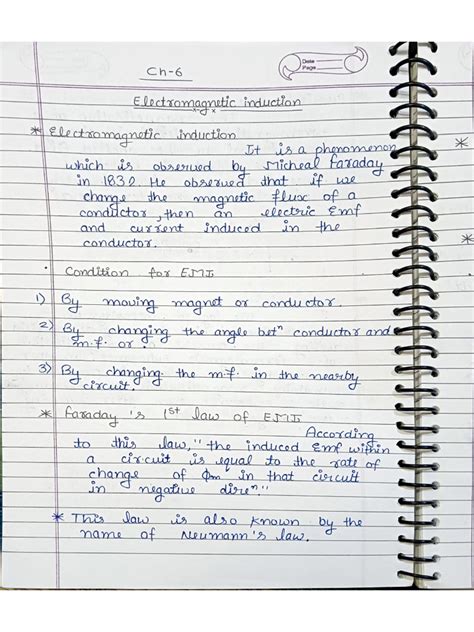 Date
Page
Ch-6
Electromagnetic induction
* Electromagnetic induction
It is a phenomenon
which is observed by Micheal faraday
in 1832. He observed that if we
change the magnetic flux of a
conductor, then an electric Emf
and current induced in the
conductor.
• Condition for EMI
1) By moving magnet or conductor.
2) By changing the angle betⁿ conductor and
m.f. or.
3) By changing the m.f. in the nearby
circuit.
* Faraday's 1st law of EMI
According
to this law, "the induced Emf within
a circuit is equal to the rate of
change of Φm in that circuit
in negative direⁿ."
* This law is also known by the
name of Neumann's law.